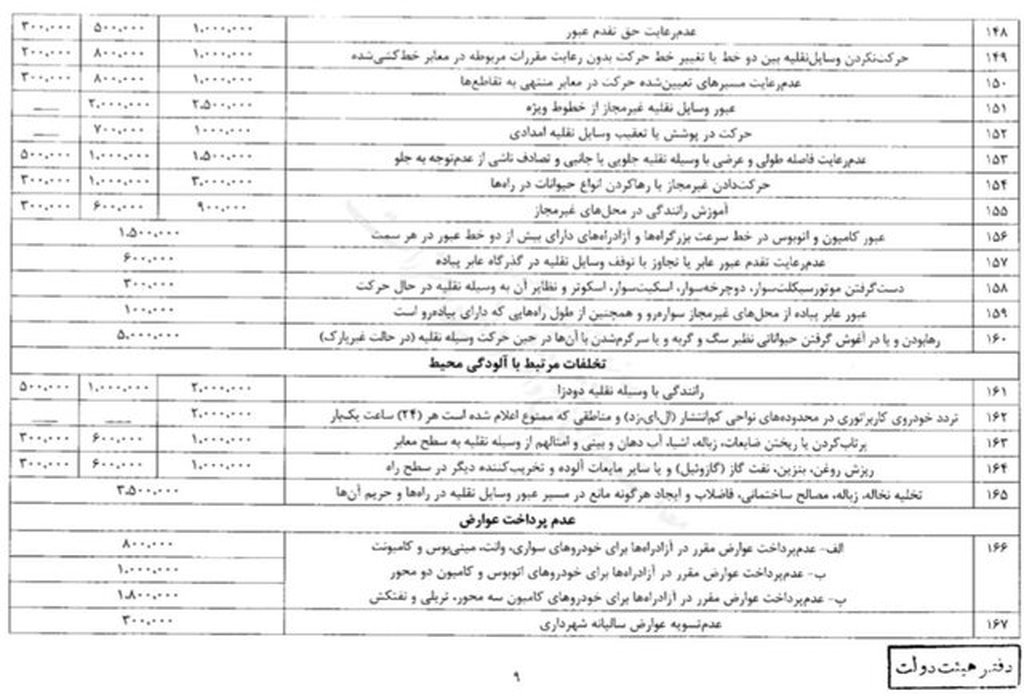 ۱۴۸ عدم‌رعایت حق تقدم عبور ۱،۰۰۰،۰۰۰ ۵۰۰،۰۰۰ ۳۰۰،۰۰۰
۱۴۹ حرکت‌نکردن وسایل‌نقلیه بین دو خط یا تغییر خط حرکت بدون رعایت مقررات مربوطه در معابر خط‌کشی‌شده ۱،۰۰۰،۰۰۰ ۸۰۰،۰۰۰ ۲۰۰،۰۰۰
۱۵۰ عدم‌رعایت مسیرهای تعیین‌شده حرکت در معابر منتهی به تقاطع‌ها ۱،۰۰۰،۰۰۰ ۸۰۰،۰۰۰ ۳۰۰،۰۰۰
۱۵۱ عبور وسایل نقلیه غیرمجاز از خطوط ویژه ۲،۵۰۰،۰۰۰ ۲،۰۰۰،۰۰۰ —
۱۵۲ حرکت در پوشش یا تعقیب وسایل نقلیه امدادی ۱۰۰۰،۰۰۰ ۷۰۰،۰۰۰ —
۱۵۳ عدم‌رعایت فاصله طولی و عرضی با وسیله نقلیه جلویی یا جانبی و تصادف ناشی از عدم‌توجه به جلو ۱،۵۰۰،۰۰۰ ۱،۰۰۰،۰۰۰ ۵۰۰،۰۰۰
۱۵۴ حرکت‌دادن غیرمجاز یا رهاکردن انواع حیوانات در راه‌ها ۳،۰۰۰،۰۰۰ ۱،۰۰۰،۰۰۰ ۳۰۰،۰۰۰
۱۵۵ آموزش رانندگی در محل‌های غیرمجاز ۹۰۰،۰۰۰ ۶۰۰،۰۰۰ ۳۰۰،۰۰۰
۱۵۶ عبور کامیون و اتوبوس در خط سرعت بزرگراه‌ها و آزادراه‌های دارای بیش از دو خط عبور در هر سمت ۱،۵۰۰،۰۰۰
۱۵۷ عدم‌رعایت تقدم عبور عابر یا تجاوز یا توقف وسایل نقلیه در گذرگاه عابر پیاده ۶۰۰،۰۰۰
۱۵۸ دست‌گرفتن موتورسیکلت‌سوار، دوچرخه‌سوار، اسکیت‌سوار، اسکوتر و نظایر آن به وسیله نقلیه در حال حرکت ۳۰۰،۰۰۰
۱۵۹ عبور عابر پیاده از محل‌های غیرمجاز سواره‌رو و همچنین از طول راه‌هایی که دارای پیاده‌رو است ۱۰۰،۰۰۰
۱۶۰ رهابودن و یا در آغوش گرفتن حیواناتی نظیر سگ و گربه و یا سرگرم‌شدن با آن‌ها در حین حرکت وسیله نقلیه (در حالت غیرپارک) ۵،۰۰۰،۰۰۰
تخلفات مرتبط با آلودگی محیط
۱۶۱ رانندگی با وسیله نقلیه دودزا ۲،۰۰۰،۰۰۰ ۱،۰۰۰،۰۰۰ ۵۰۰،۰۰۰
۱۶۲ تردد خودروی کاربراتوری در محدوده‌های نواحی کم‌انتشار (ال‌ای‌زد) و مناطقی که ممنوع اعلام شده است هر (۲۴) ساعت یک‌بار ۲،۰۰۰،۰۰۰ — —
۱۶۳ پرتاب‌کردن یا ریختن ضایعات، زباله، اشیا، آب دهان و بینی و امثالهم از وسیله نقلیه به سطح معابر ۱،۰۰۰،۰۰۰ ۶۰۰،۰۰۰ ۳۰۰،۰۰۰
۱۶۴ ریزش روغن، بنزین، نفت گاز (گازوئیل) و یا سایر مایعات آلوده و تخریب‌کننده دیگر در سطح راه ۱،۰۰۰،۰۰۰ ۶۰۰،۰۰۰ ۳۰۰،۰۰۰
۱۶۵ تخلیه نخاله، زباله، مصالح ساختمانی، فاضلاب و ایجاد هرگونه مانع در مسیر عبور وسایل نقلیه در راه‌ها و حریم آن‌ها ۳،۵۰۰،۰۰۰
عدم پرداخت عوارض
۱۶۶ الف- عدم‌پرداخت عوارض مقرر در آزادراه‌ها برای خودروهای سواری، وانت، مینی‌بوس و کامیونت ۸۰۰،۰۰۰
ب- عدم‌پرداخت عوارض مقرر در آزادراه‌ها برای خودروهای اتوبوس و کامیون دو محور ۱،۰۰۰،۰۰۰
پ- عدم‌پرداخت عوارض مقرر در آزادراه‌ها برای خودروهای کامیون سه محور، تریلی و نفتکش ۱،۸۰۰،۰۰۰
۱۶۷ عدم‌تسویه عوارض سالیانه شهرداری ۳۰۰،۰۰۰
دفتر هیئت دولت
۹